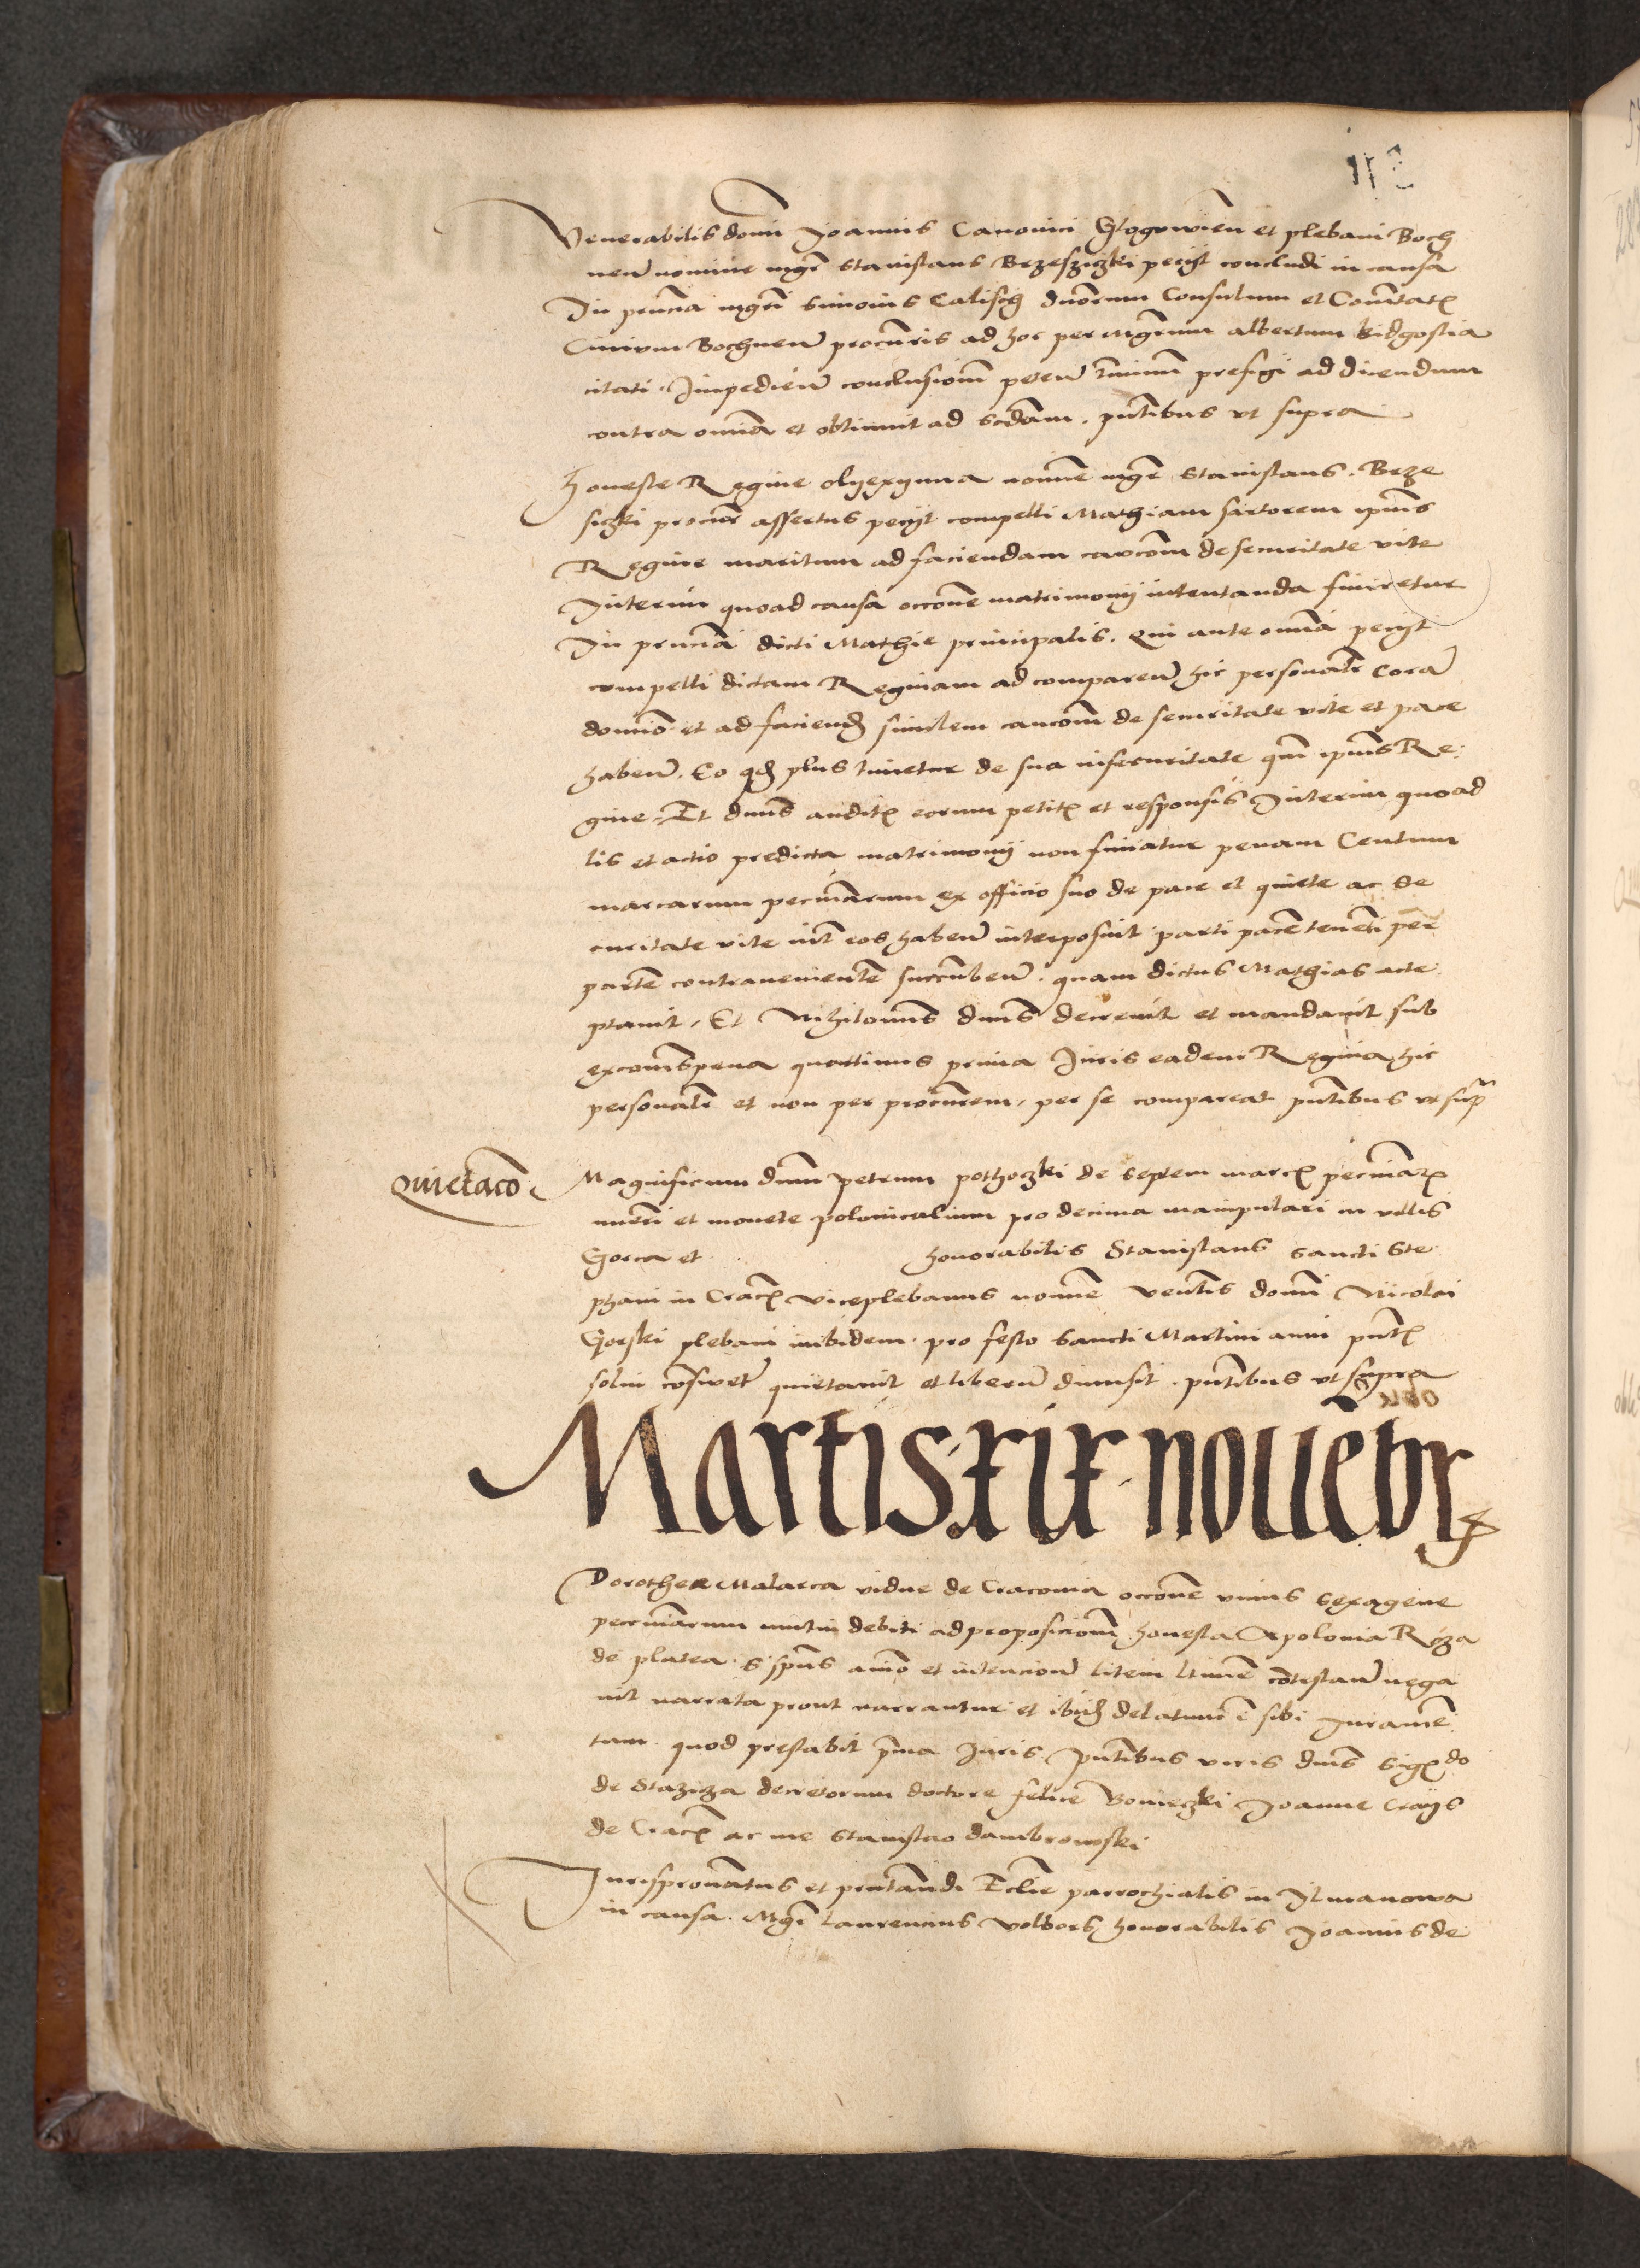 Venerabilis domi Joannis Canonici Glogovien et plebani Boch
nen nomine mgr Stanislaus Brzesziczki petijt concludi in causa
In pruncia mgri Simonis Calisch duorum Consulum et Comitatis
Civium Bochnen procuris ad hoc per Mgrum Albertum bidgostia
citati. Impedien conclusionem peten tminum prefigi ad dicendum
contra omnia et obtinuit ad scdam. pntibus vt supra
Honeste Regine olyexynna nomine mgr Stanislaus. Brze
siczki procur assertus petijt compelli Mathiam sartorem ipius
Regine maritum ad faciendam caucom de securitate vite
Interim quoad causa occone matrimonij intentanda finiretur
In pruncia dicti Mathie principalis. Qui ante omnia petijt
compelli dictam Reginam ad comparen hic personalr Cora
domino et ad faciend similem caucom de securitate vite et pace
haben. Eo qd plus timetur de sua insecuritate qm ipius Re
gine. Et dnus auditis eorum petitis et responsis Interim quoad
lis et actio predicta matrimonij non finiatur penam Centum
marcarum pecuniarum ex officio suo de pace et quiete ac se
curitate vite int eos haben interposuit parti pacem tenenti per
partem contravenientem succumben. quam dictus Mathias acce
ptavit. Et Nihilominus dnus decrevit et mandavit sub
excomis pena quattinus prima Juris eadem Regina hic
personalr et non per procurem, per se compareat pntibus vt supra
Quietaco
Magnificum dnum petrum pothoczki de septem marcis pecuniaris
numeri et monete polonicalium pro decima manipulari in villis
Gorca et honorabilis Stanislaus sancti Ste
phani in Crac viceplebanus nomine ventlis domini Nicolai
Gorski plebani inibidem. pro festo Sancti Martini anni pntis
solui consuet quietavit et liberum dimisit. pntibus vt supra
Martis xix novebr
Dorothee Malarca vidue de Cracovia occone unius sexagene
pecuniarum mutui debiti ad proposicionem honesta Apolonia Roza
de platea S spus animo et intencione litem ltime contestan nega
vit narrata prout narrantur et ibid delatum e sibi Jurame
tum quod prestabit prima Juris pntibus viris dnis Sigis do
de Stazicza decretorum doctore felice Bonieczki Joanne Crays
de Crac ac me Stanislao dambrowski
Jurispronatus et pntandi Eclie parrochialis in Ilmanowa
in causa. Mgr Laurencius Volbors honorabilis Joannis de